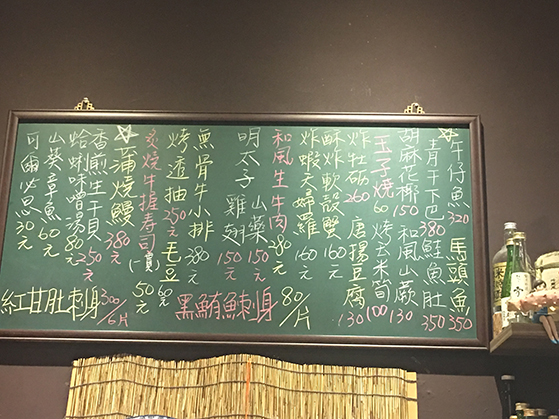 午仔魚320 馬頭魚350
青干下巴380 鮭魚肚350
胡麻花椰150 和風山蕨130
玉子燒60 烤玄米筍100
炸牡蠣260 唐揚豆腐130
酥炸軟殼蟹160元
炸蝦天婦羅160元
和風生牛肉280元
明太子山藥150元
雞翅150元
無骨牛小排380元
烤透抽250元 毛豆60元
炙燒牛握壽司(一貫)50元
蒲燒鰻380元
香煎生干貝250元
蛤蜊味噌湯80元
山葵章魚60元
可爾必思30元
黑鮪鮪刺身80/片
紅甘肚刺身300/6片